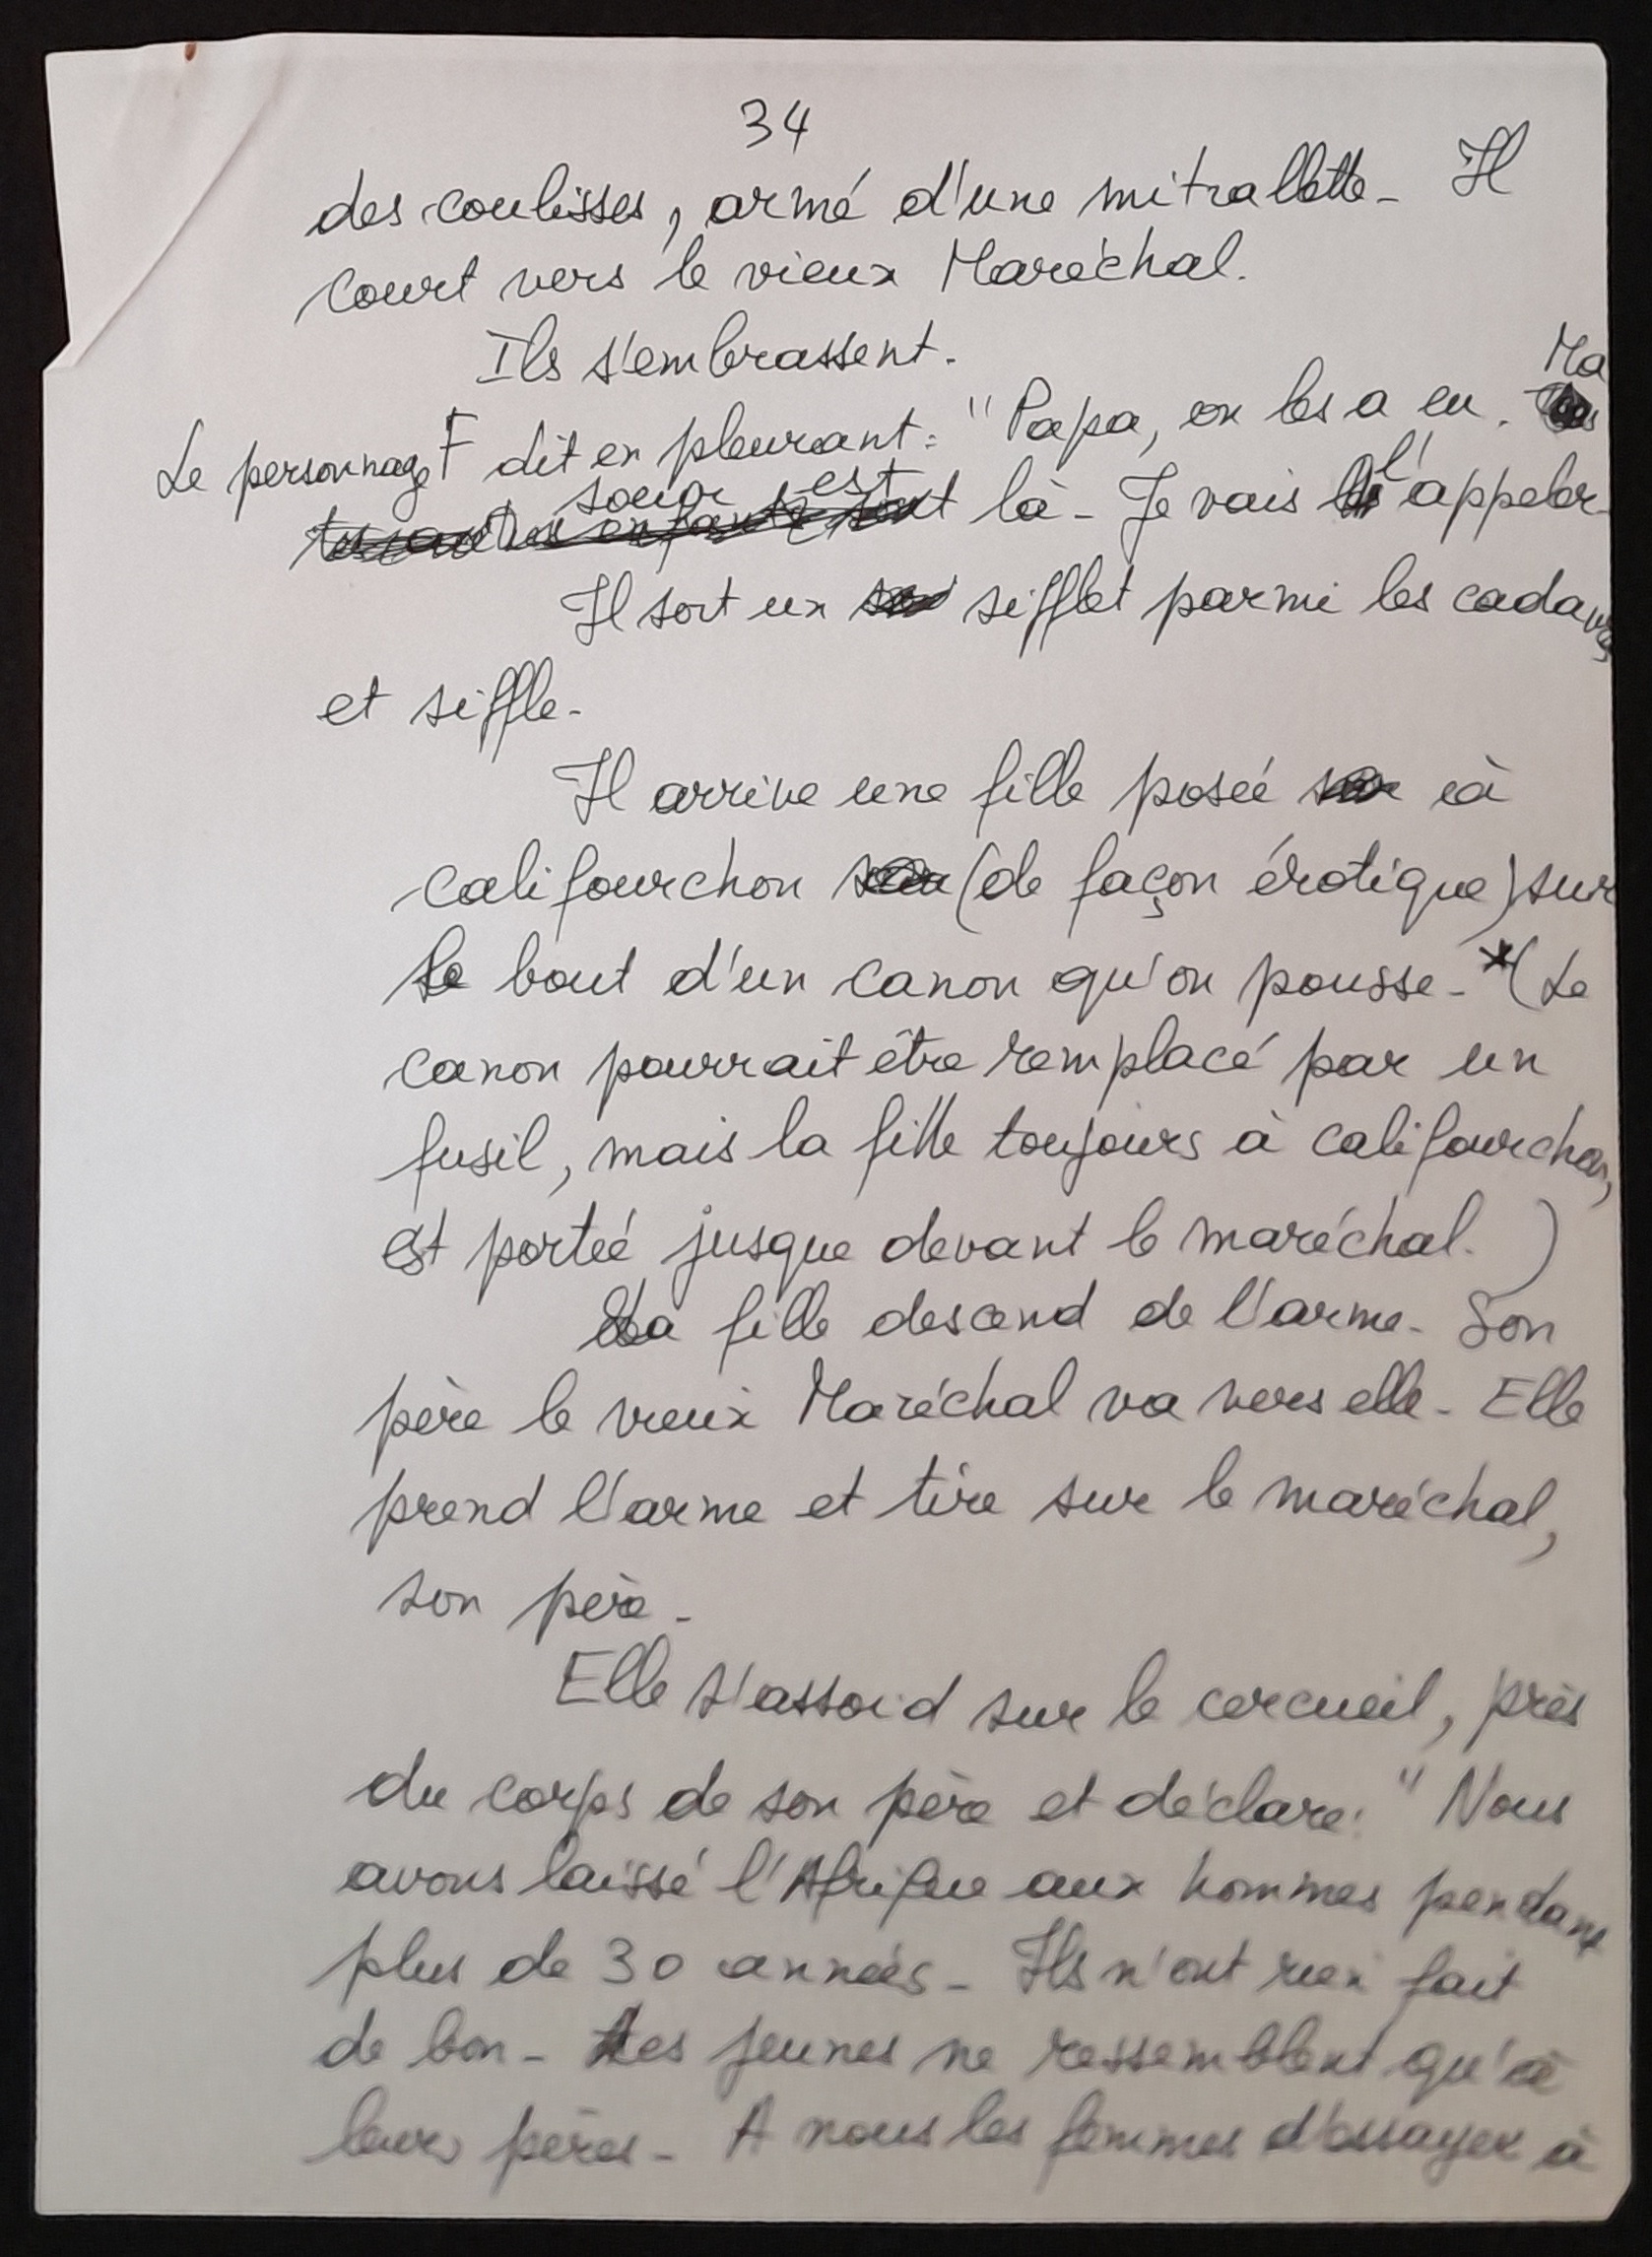 34
des coulisses, armé d'une mitrallette - Il
court vers le vieux Maréchal.
Ils s'embrassent.
Le personnage F dit en pleurant : "Papa, on les a eu. Ma
soeur est là - Je vais l'appeler
Il sort un sifflet parmi les cadavres
et siffle -
Il arrive une fille posée à
califourchon (de façon érotique) sur
le bout d'un canon qu'on pousse - *(Le
canon pourrait être remplacé par un
fusil, mais la fille toujours à califourchon,
est portée jusque devant le maréchal. )
La fille descend de l'arme - Son
père le vieux Maréchal va vers elle - Elle
prend l'arme et tire sur le maréchal,
son père -
Elle s'assoid sur le cercueil, près
du corps de son père et déclare : "Nous
avons laissé l'Afrique aux hommes pendant
plus de 30 années - Ils n'ont rien fait
de bon - Les jeunes ne ressemblent qu'à
leurs pères - A nous les femmes d'essayer à